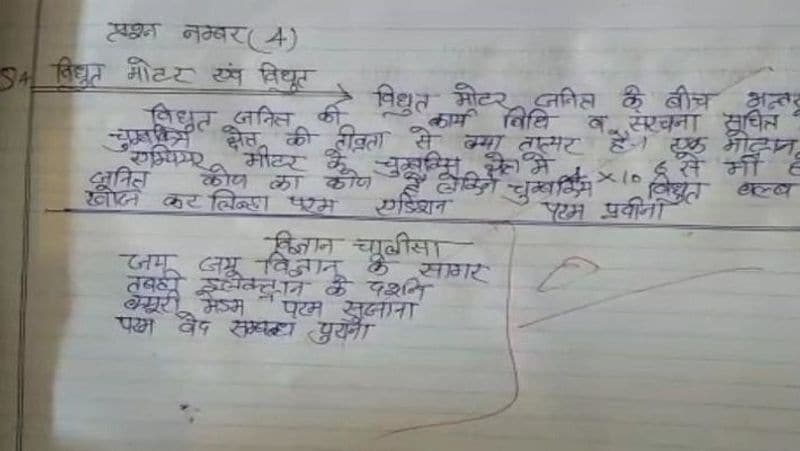 प्रश्न नम्बर (4)
विधुत मोटर एवं विधुत
विधुत मोटर जनित के बीच
विधुत जनित की कार्य विधि व संरचना सूचित
चुम्बकिये क्षेत्र की तीव्रता से क्या तात्पर है। एक
एम्पियर मीटर के चुम्बकिय क्षेत्र में × 10 से मी
जनित कोण का कोण है लेकिन चुम्बकिय विधुत बल्ब
खोज कर लिन्हा परम एडिशन परम प्रवीना
विज्ञान चालीसा
जय जय विज्ञान के सागर
तबही इलेक्ट्रान के दर्शन
मैडम परम सुजाना
परम वेद सम्बन्ध पुराना